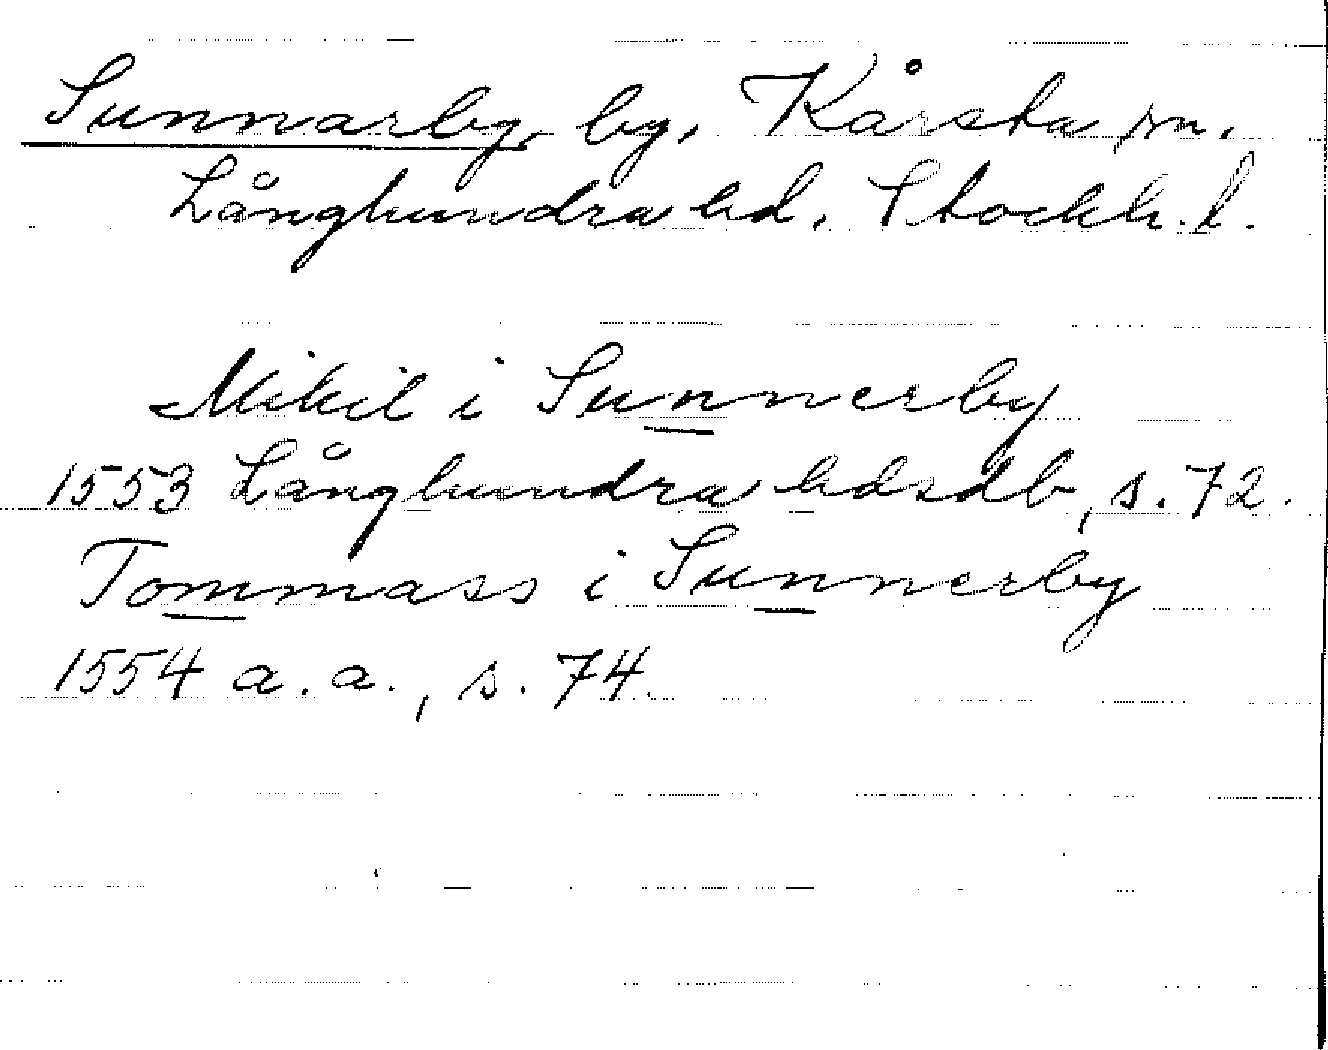 Sunnarby, by, Kårsta sn.
Långhundra hd. Stockh. l.
Mikil i Sunnerby
1553 Långhundra hdsdb, s. 72.
Tommass i Sunnerby
1554 a. a., s. 74.